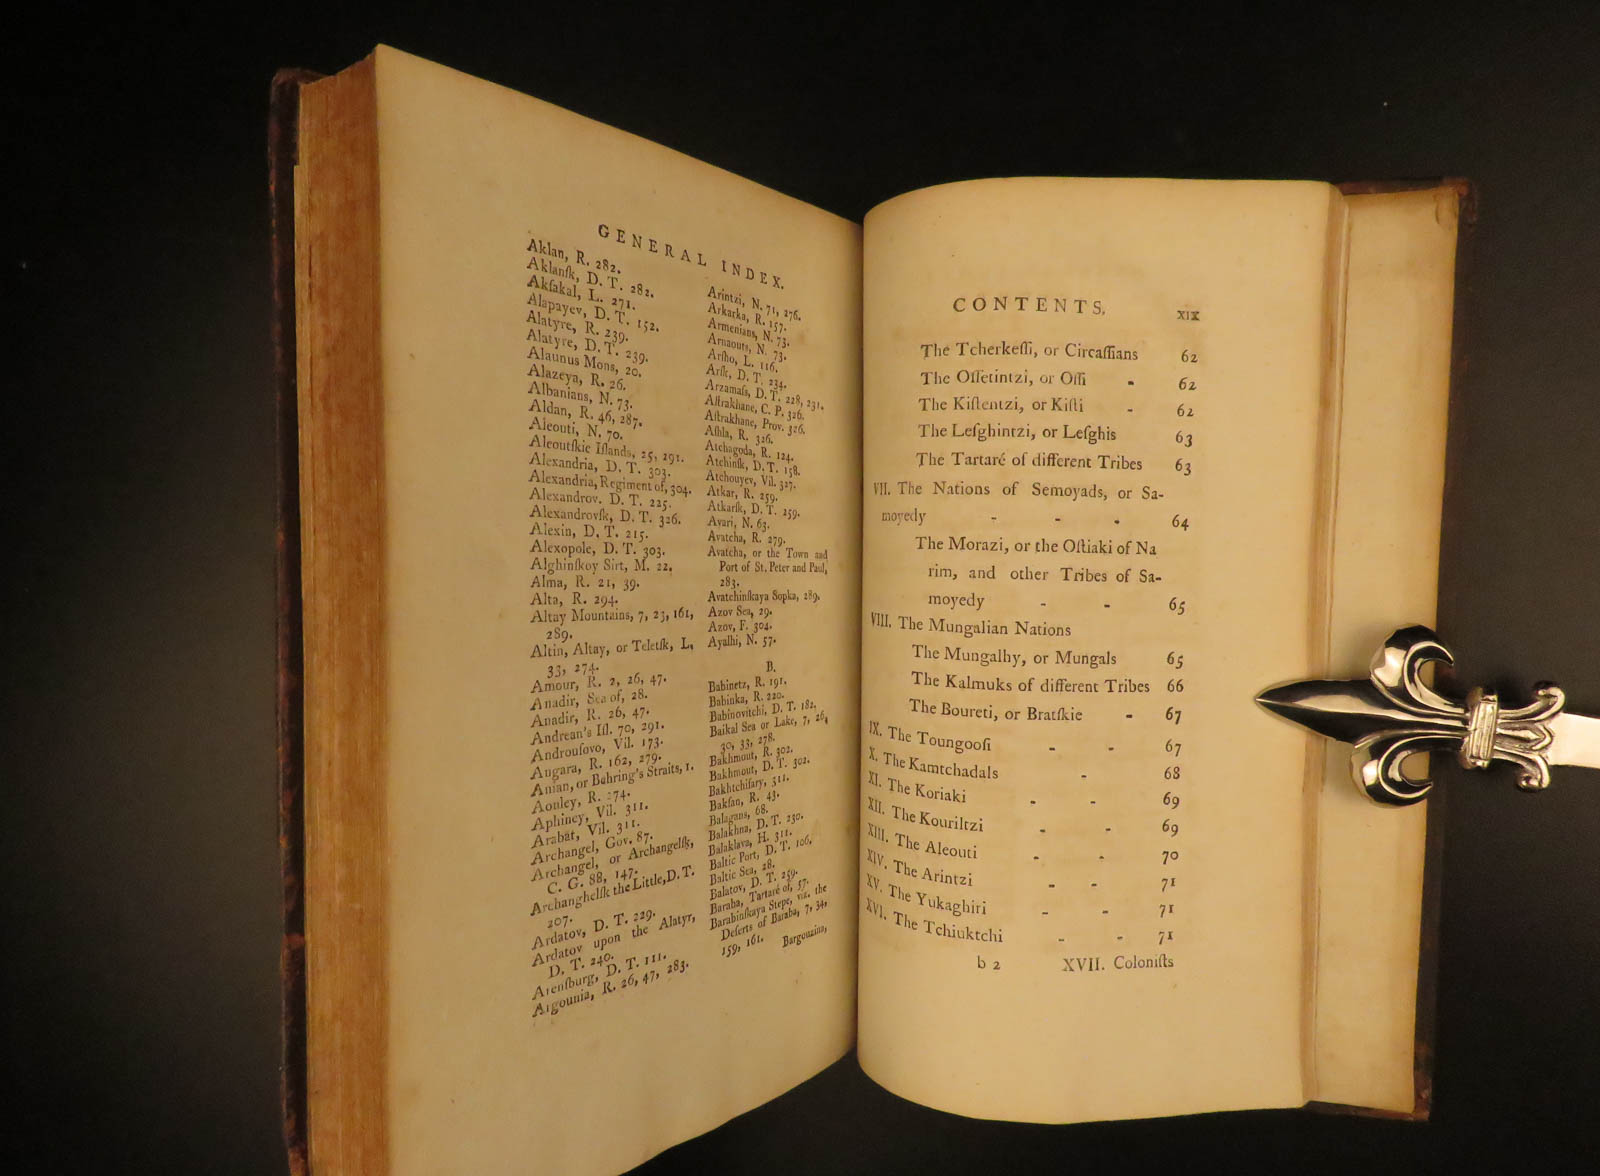 GENERAL INDEX.
Aklan, R. 282.
Aklanſk, D. T. 282.
Akſakal, L. 271.
Alapayev, D. T. 152.
Alatyre, R. 239.
Alatyre, D. T. 239.
Alaunus Mons, 20.
Alazeya, R. 26.
Albanians, N. 73.
Aldan, R. 46, 287.
Aleouti, N. 70.
Aleoutſkie Iſlands, 25, 291.
Alexandria, D. T. 303.
Alexandria, Regiment of, 304.
Alexandrov. D. T. 225.
Alexandrovſk, D. T. 326.
Alexin, D. T. 215.
Alexopole, D. T. 303.
Alghinſkoy Sirt, M. 22.
Alma, R. 21, 39.
Alta, R. 294.
Altay Mountains, 7, 23, 161,
289.
Altin, Altay, or Teletſk, L,
33, 274.
Amour, R. 2, 26, 47.
Anadir, Sea of, 28.
Anadir, R. 26, 47.
Andrean's Iſl. 70, 291.
Androuſovo, Vil. 173.
Angara, R. 162, 279.
Anian, or Behring's Straits, 1.
Aonley, R. 274.
Aphiney, Vil. 311.
Arabat, Vil. 311.
Archangel, Gov. 87.
Archangel, or Archangelſk,
C. G. 88, 147.
Archanghelſk the Little, D. T.
207.
Ardatov, D. T. 229.
Ardatov upon the Alatyr,
D. T. 240.
Arenſburg, D. T. 111.
Argounia, R. 26, 47, 283.
Arintzi, N. 71, 276.
Arkarka, R. 157.
Armenians, N. 73.
Arnaouts, N. 73.
Arſho, L. 116.
Arſk, D. T. 234.
Arzamaſs, D. T. 228, 231.
Aſtrakhane, C. P. 326.
Aſtrakhane, Prov. 326.
Aſhla, R. 326.
Atchagoda, R. 124.
Atchinſk, D. T. 158.
Atchouyev, Vil. 327.
Atkar, R. 259.
Atkarſk, D. T. 259.
Avari, N. 63.
Avatcha, R. 279.
Avatcha, or the Town and
Port of St. Peter and Paul,
283.
Avatchinſkaya Sopka, 289.
Azov Sea, 29.
Azov, F. 304.
Ayalhi, N. 57.
B.
Babinetz, R. 191.
Babinka, R. 220.
Babinovitchi, D. T. 182.
Baikal Sea or Lake, 7, 26,
30, 33, 278.
Bakhmout, R. 302.
Bakhmout, D. T. 302.
Bakhtchiſary, 311.
Bakſan, R. 43.
Balagans, 68.
Balakhna, D. T. 230.
Balaklava, H. 311.
Baltic Port, D. T. 106.
Baltic Sea, 28.
Balatov, D. T. 259.
Baraba, Tartaré of, 57.
Barabinſkaya Stepe, viz. the
Deſerts of Baraba, 7, 34,
159, 161.
Bargouzina,
CONTENTS. xix
The Tcherkeſſi, or Circaſſians 62
The Oſſetintzi, or Oſſi - 62
The Kiſtentzi, or Kiſti - 62
The Leſghintzi, or Leſghis 63
The Tartaré of different Tribes 63
VII. The Nations of Semoyads, or Sa-
moyedy - - - 64
The Morazi, or the Oſtiaki of Na
rim, and other Tribes of Sa-
moyedy - - 65
VIII. The Mungalian Nations
The Mungalhy, or Mungals 65
The Kalmuks of different Tribes 66
The Boureti, or Bratſkie - 67
IX. The Toungooſi - - 67
X. The Kamtchadals - 68
XI. The Koriaki - - 69
XII. The Kouriltzi - - 69
XIII. The Aleouti - - 70
XIV. The Arintzi - - 71
XV. The Yukaghiri - - 71
XVI. The Tchiuktchi - - 71
b 2 XVII. Coloniſts